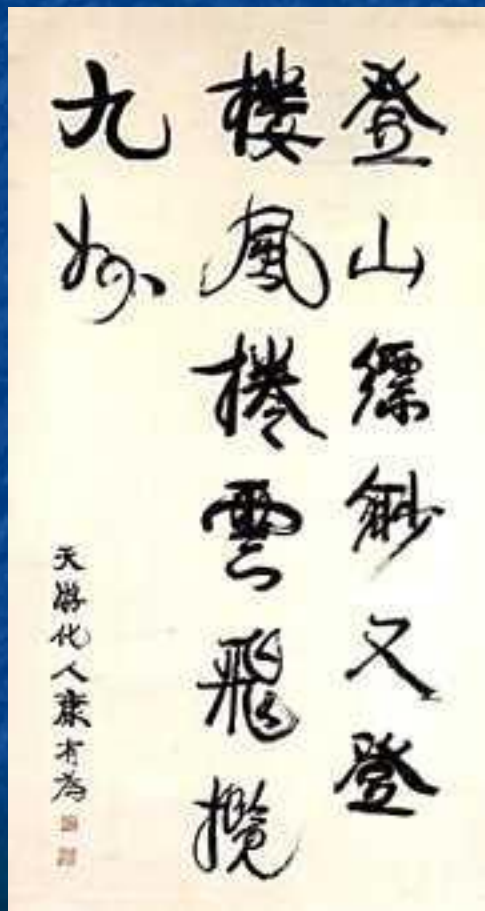 登山縹緲又登
樓風捲雲飛攬
九州
天游化人康有為